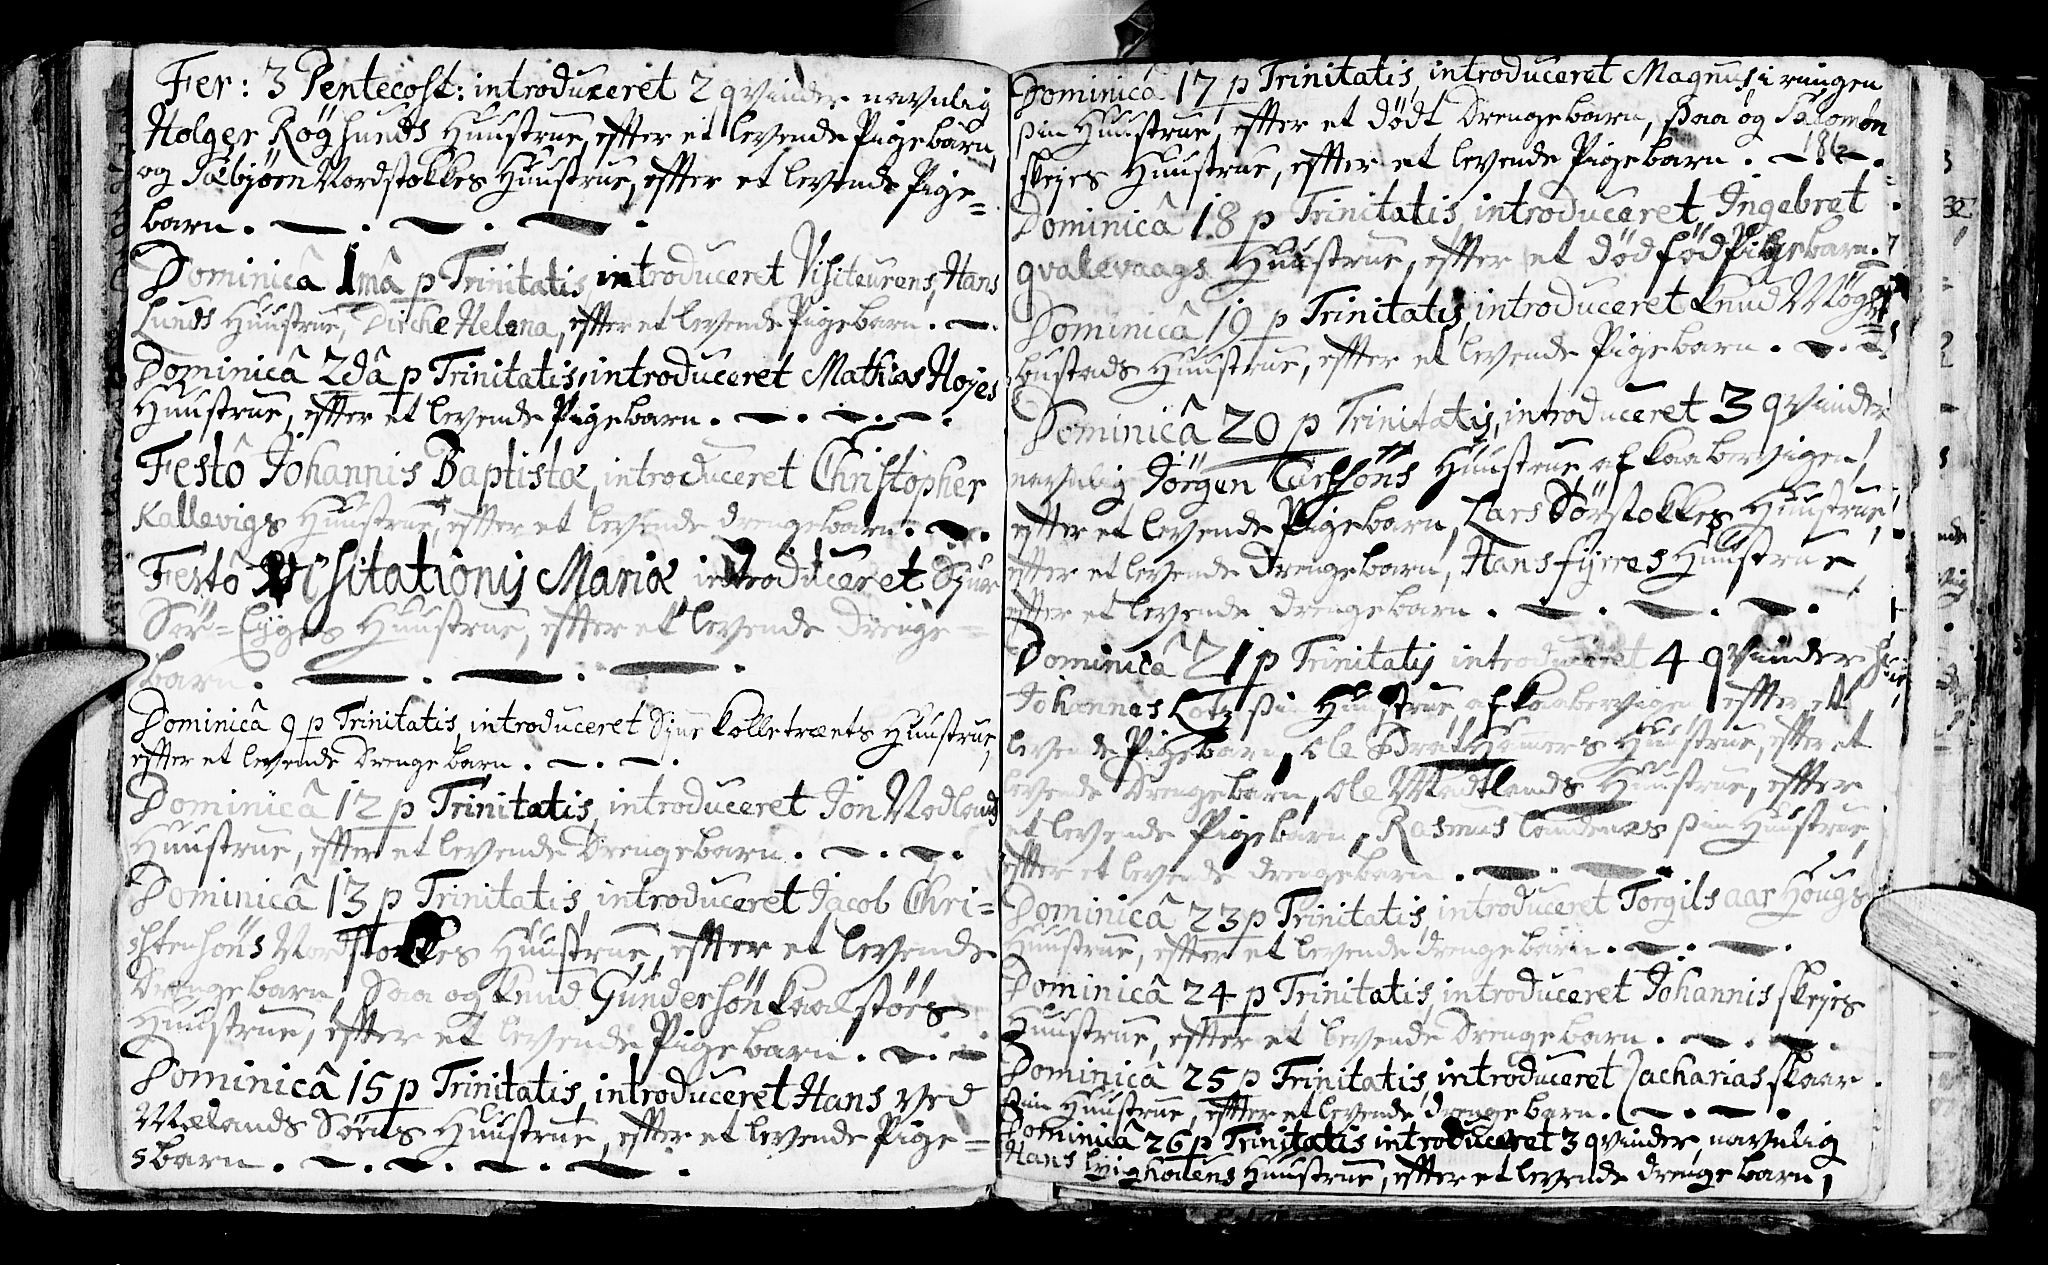 Fer: 3 Pentecost: introduceret 2 qvinder navnlig
Holger Røghunds Huustrue, effter et levende Pigebarn,
og Sæbjørn Nordstokkes Huustrue, effter et levende Pige=
barn.
Dominicâ 1mâ p Trinitatis introduceret Visiteurens, Hans
Lunds Huustrue, Dirche Helena, effter et levende Pigebarn.
Dominicâ 2dâ p Trinitatis, introduceret Mathias Høyes
Huustrue, effter et levende Pigebarn.
Festô Johannis Baptistæ, introduceret Christopher
Kallevigs Huustrue, effter et levende drengebarn.
Festô Visitationis Mariæ introduceret Sjur
Sør=Eyges Huustrue, effter et levende Drenge=
barn.
Dominicâ 9 p Trinitatis, introduceret Kolletræets Huustrue,
effter et levende Drengebarn.
Dominicâ 12 p Trinitatis, introduceret Jon Nodlands
Huustrue, effter et levende Drengebarn.
Dominicâ 13 p Trinitatis, introduceret Jacob Chri=
stensøns Nordstokkes Huustrue, effter et levende
Drengebarn, Saa og Knud Gundersøn Kaalstøes
Huustrue, effter et levende Pigebarn.
Dominicâ 15 p Trinitatis, introduceret Hans ved
Mælands Søens Huustrue, effter et levende Pige=
barn.
Dominicâ 17 p Trinitatis, introduceret Magnus i ringen
sin Huustrue, effter et dødt Drengebarn, saa og Salomon
skejes Huustrue, effter et levende Pigebarn.
186
Dominicâ 18 p Trinitatis, introduceret, Ingebret
qvalevaags Huustrue, effter et død fød Pigebarn.
Dominicâ 19 p Trinitatis, introduceret Knud Møgle=
bustads Huustrue, effter et levende Pigebarn.
Dominicâ 20 p Trinitatis, introduceret 3 qvinder
navnlig Jørgen Huustrue af Kaabervigen,
effter et levende Pigebarn, Lars Sørstokkes Huustrue,
effter et levende Drengebarn, Hans fyrres Huustrue
effter et levende Drengebarn.
Dominicâ 21 p Trinitatis introduceret 4 qvinder
Johannes Lotz sin Huustrue af Kaabervigen effter et
levende Pigebarn, Ole Huustrue, effter et
levende Drengebarn, Ole Mædlands Huustrue, effter
et levende Pigebarn, Rasmus sin Huustrue,
effter et levende drengebarn.
Dominicâ 23 p Trinitatis, introduceret Torgils aar Hougs
Huustrue, effter et levende drengebarn.
Dominicâ 24 p Trinitatis, introduceret Johannis skejes
Huustrue, effter et levende Drengebarn.
Dominicâ 25 p Trinitatis, introduceret Zacharias skaar
sin Huustrue, effter et levende drengebarn.
Dominicâ 26 p Trinitatis introduceret 3 qvinder, navnlig
Hans Huustrue, effter et levende drengebarn,